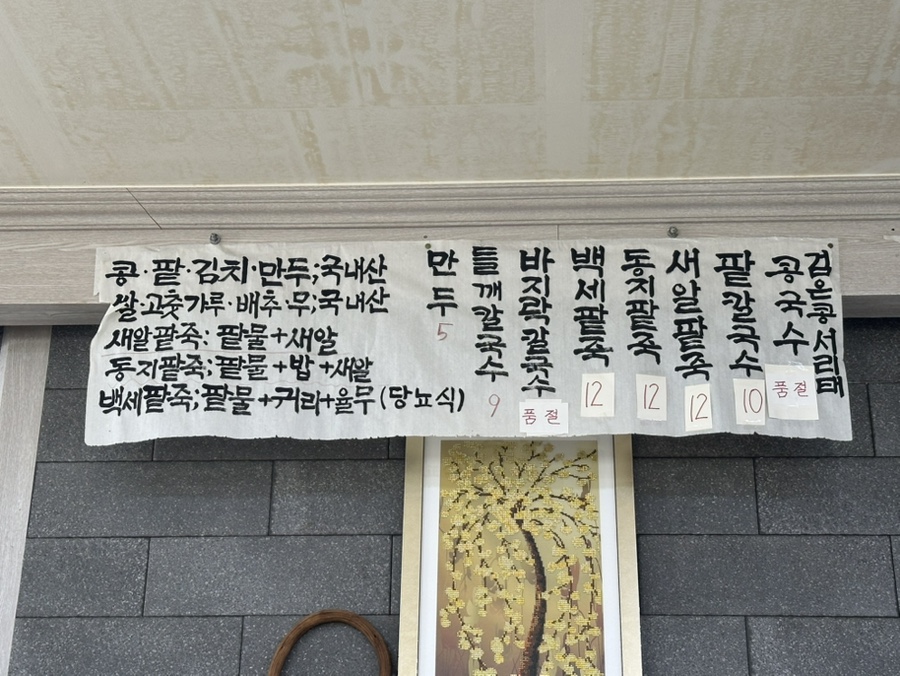 콩·팥·김치·만두;국내산
쌀·고춧가루·배추·무;국내산
새알팥죽: 팥물+새알
동지팥죽; 팥물+밥+새알
백세팥죽; 팥물+귀리+율무(당뇨식)
만두
5
들깨칼국수
9
바지락칼국수
품절
백세팥죽
12
동지팥죽
12
새알팥죽
12
팥칼국수
10
콩국수
품절
검은콩서리태